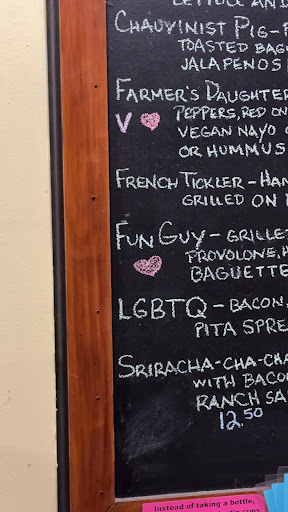 LETTUCE AND
CHAUVINIST PIG-
TOASTED BAG
JALAPENOS
FARMER'S DAUGHTER
V PEPPERS, RED ON
VEGAN NAYO
OR HUMMUS
FRENCH TICKLER - HAM
GRILLED ON
FUN GUY - GRILLE
PROVOLONE,
BAGUETTE
LGBTQ - BACON,
PITA SPRE
SRIRACHA-CHA-CHA
WITH BACO
RANCH SA
12.50
Instead of taking a bottle,